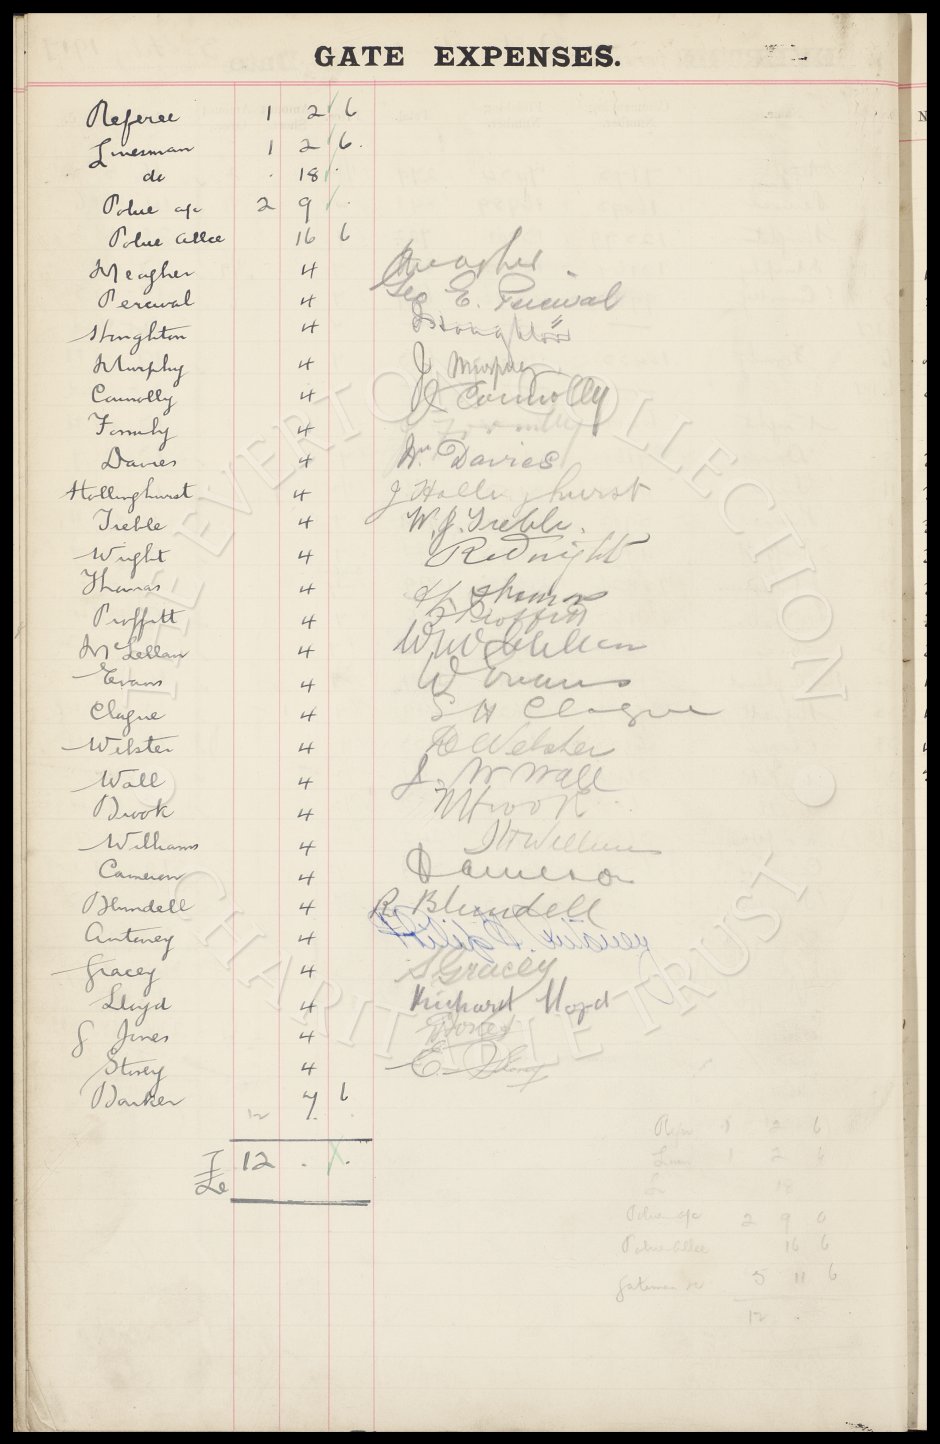 GATE EXPENSES.
Referee 1 2 6
Linesman 1 2 6.
do . 18 .
Police a/c 2 9 .
Police Allce 16 6
Meagher 4 Meagher
Percival 4 Geo E. Percival
Houghton 4 Houghton
Murphy 4 J Murphy
Connolly 4 J Connolly
Formby 4 Formby
Davies 4 Wm Davies
Hollinghurst 4 J Hollinghurst
Treble 4 W. J. Treble.
Wright 4 R Wright
Thomas 4 Thomas
Proffitt 4 Proffitt
McLellan 4 W McLellan
Evans 4 W Evans
Clague 4 S H Clague
Webster 4 Webster
Wall 4 J. W Wall
Brook 4 Brook
Williams 4 Williams
Cameron 4 Cameron
Blundell 4 R Blundell
Anteney 4 Philip Anteney
Gracey 4 S Gracey
Lloyd 4 Richard Lloyd
G Jones 4 G Jones
Storey 4 E. Storey
Barker 7 6
12
12 . .
Ref 1 2 6
Line 1 2 6
L 18
Police a/c 2 9 0
Police Allce 16 6
Gatemen &c 5 11 6
12
THE EVERTON COLLECTION
CHARITABLE TRUST